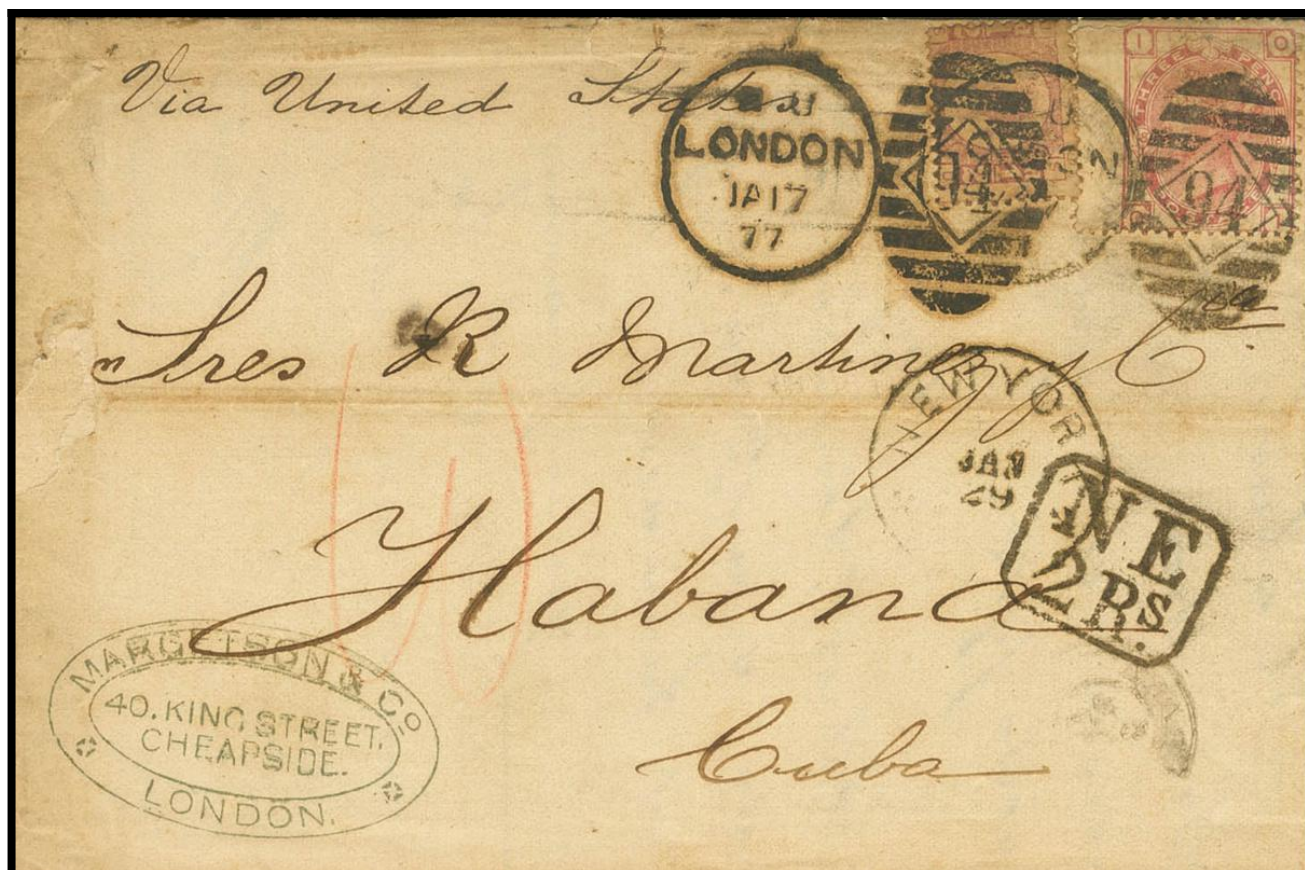 Via United States
LONDON
JA 17
77
94
94
THREE PENCE
I O
Sres R Martinez y Ca.
NEW YOR
JAN
29
NE
2 Rs.
Habana
Cuba
MARGETSON & Co
40. KING STREET.
CHEAPSIDE.
LONDON.